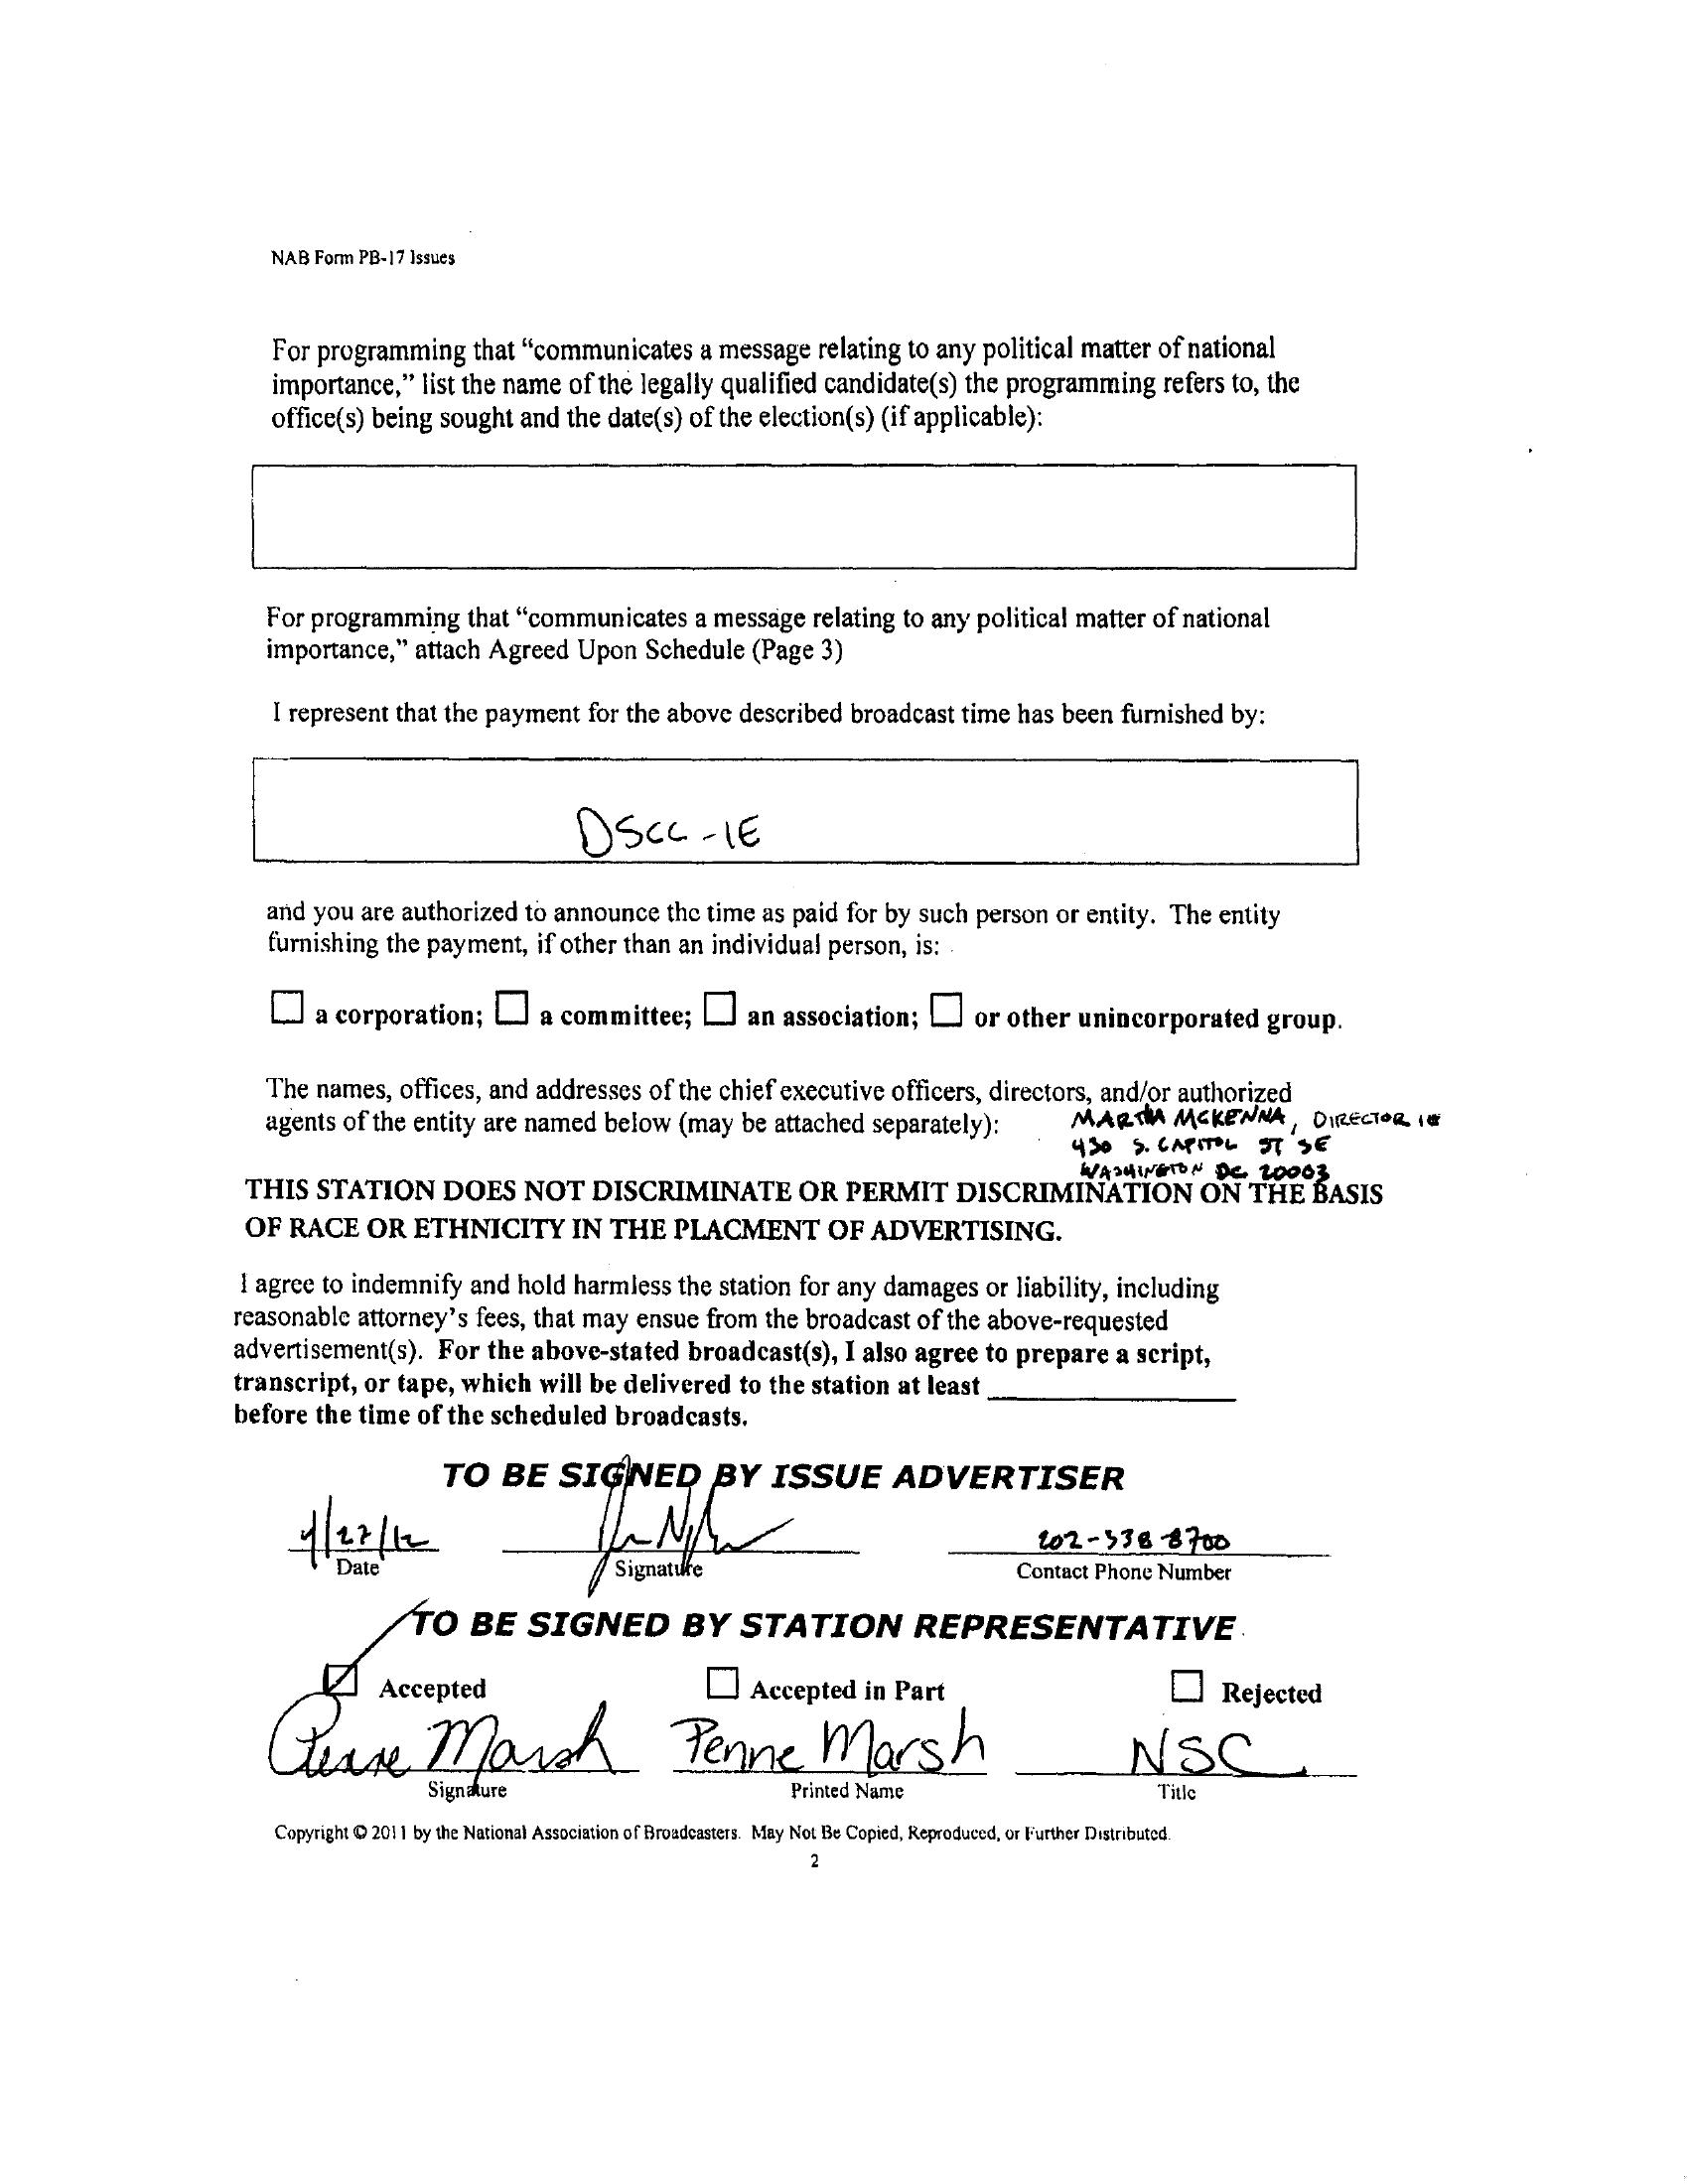 NAB Form PB-17 Issues
For programming that “communicates a message relating to any political matter of national
importance,” list the name of the legally qualified candidate(s) the programming refers to, the
office(s) being sought and the date(s) of the election(s) (if applicable):
For programming that “communicates a message relating to any political matter of national
importance,” attach Agreed Upon Schedule (Page 3)
I represent that the payment for the above described broadcast time has been furnished by:
DSCC - IE
and you are authorized to announce the time as paid for by such person or entity. The entity
furnishing the payment, if other than an individual person, is:
a corporation; a committee; an association; or other unincorporated group.
The names, offices, and addresses of the chief executive officers, directors, and/or authorized
agents of the entity are named below (may be attached separately): MARTHA MCKENNA, DIRECTOR IE
430 S. CAPITOL ST SE
WASHINGTON DC 20003
THIS STATION DOES NOT DISCRIMINATE OR PERMIT DISCRIMINATION ON THE BASIS
OF RACE OR ETHNICITY IN THE PLACMENT OF ADVERTISING.
I agree to indemnify and hold harmless the station for any damages or liability, including
reasonable attorney’s fees, that may ensue from the broadcast of the above-requested
advertisement(s). For the above-stated broadcast(s), I also agree to prepare a script,
transcript, or tape, which will be delivered to the station at least
before the time of the scheduled broadcasts.
TO BE SIGNED BY ISSUE ADVERTISER
202-338-8700
Date Signature Contact Phone Number
TO BE SIGNED BY STATION REPRESENTATIVE
Accepted Accepted in Part Rejected
Penne Marsh Penne Marsh NSC
Signature Printed Name Title
Copyright © 2011 by the National Association of Broadcasters. May Not Be Copied, Reproduced, or Further Distributed.
2